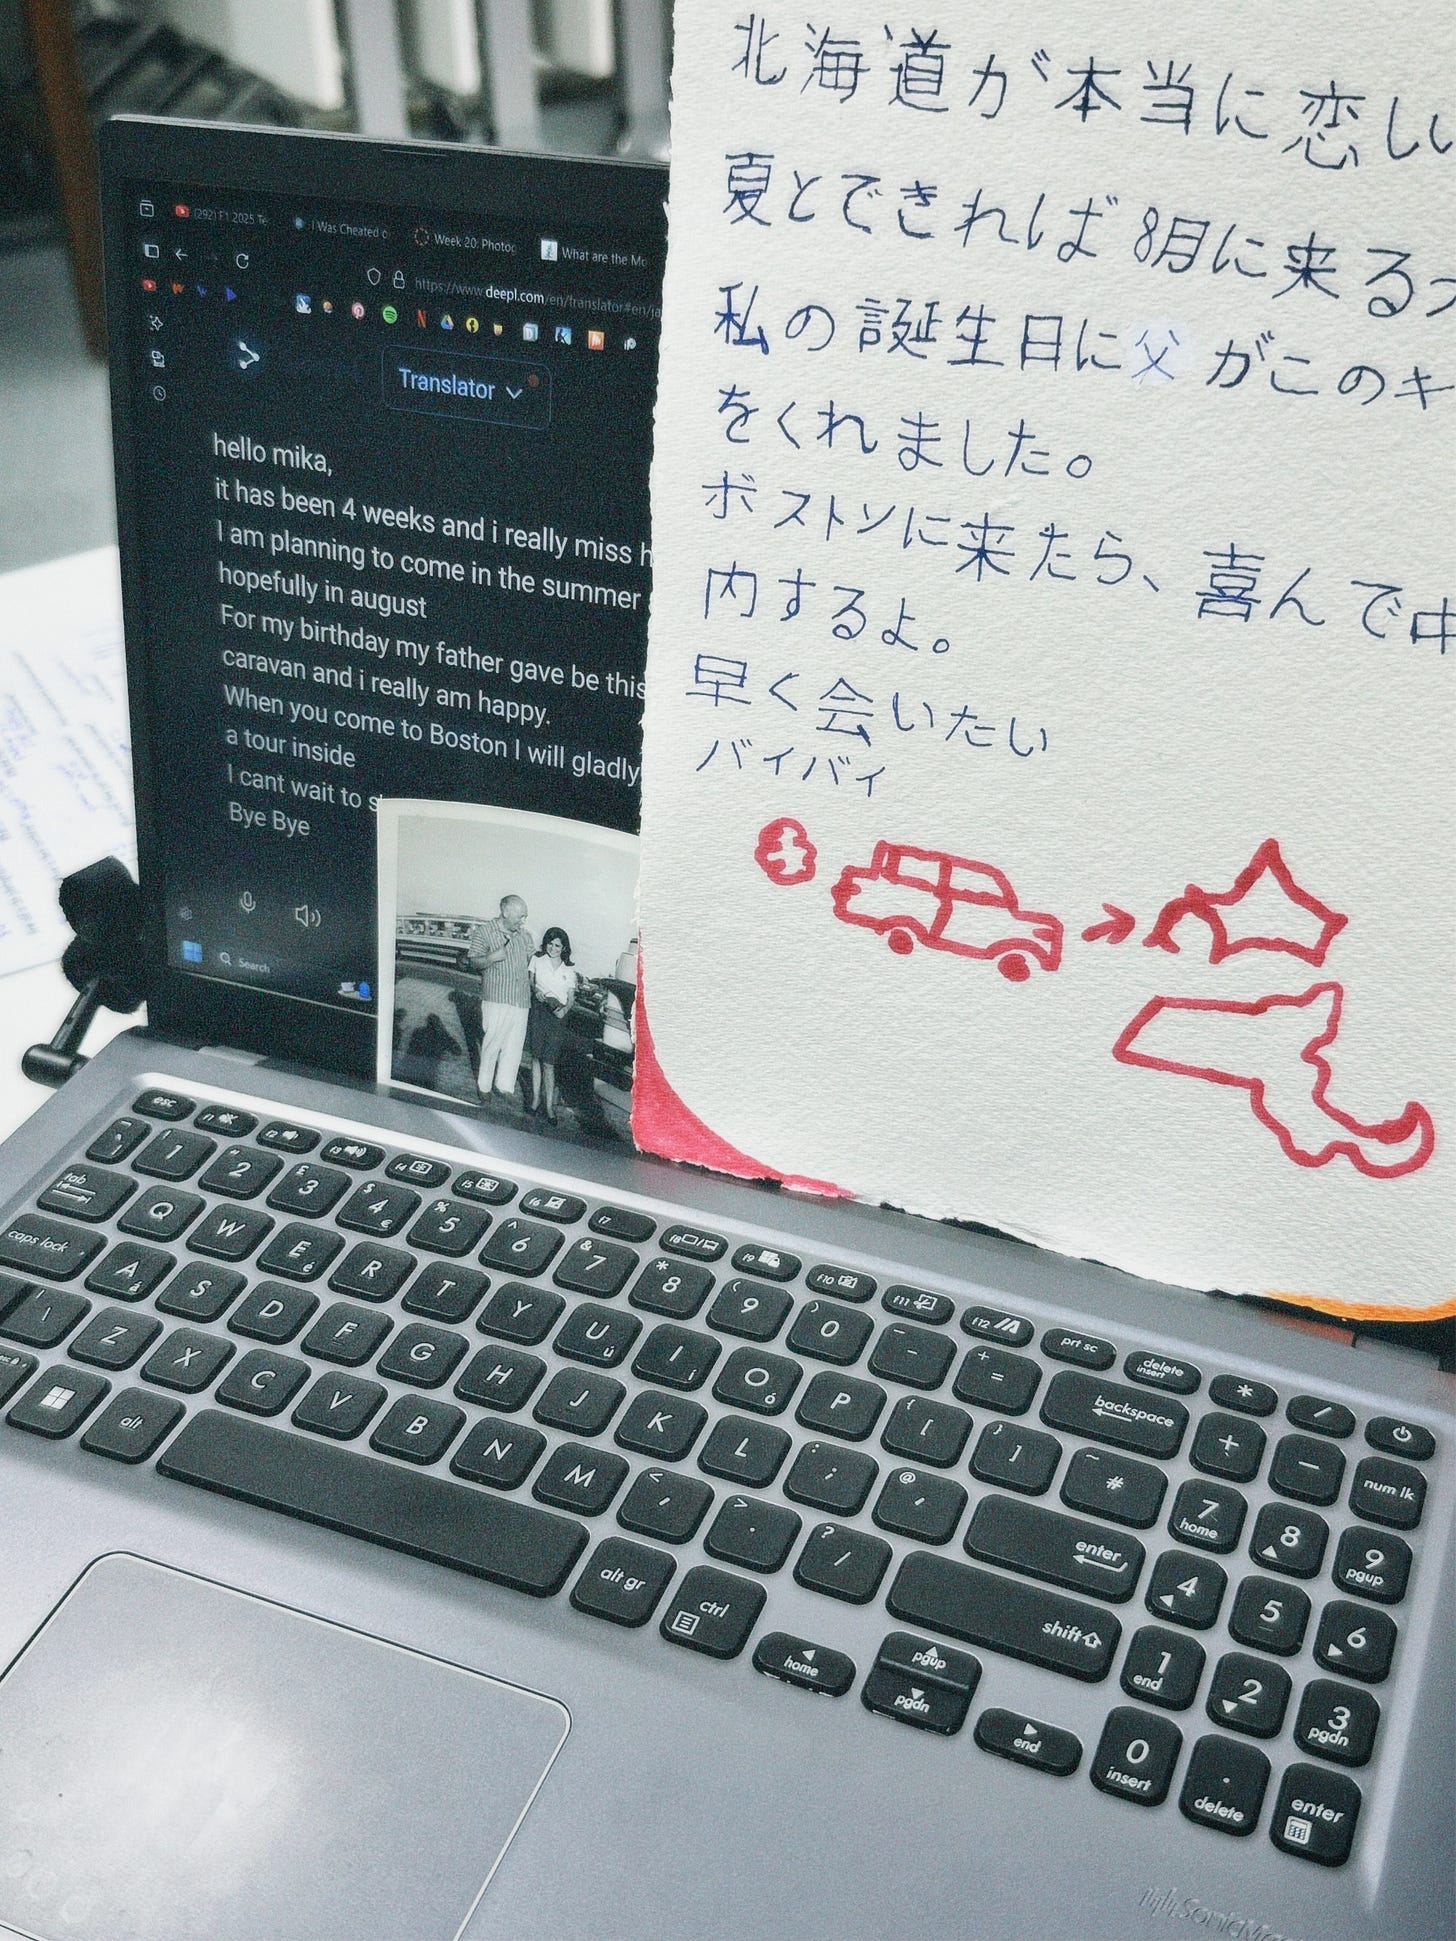 (292) F1 2025 Te
I Was Cheated o
Week 20: Photog
What are the Mo
https://www.deepl.com/en/translator#en/ja
Translator
hello mika,
it has been 4 weeks and i really miss h
I am planning to come in the summer
hopefully in august
For my birthday my father gave be this
caravan and i really am happy.
When you come to Boston I will gladly
a tour inside
I cant wait to s
Bye Bye
Search
北海道が本当に恋しい
夏とできれば8月に来る
私の誕生日に父がこのキ
をくれました。
ボストンに来たら、喜んで中
内するよ。
早く会いたい
バイバイ
esc f1 f2 f3 f4 f5 f6 f7 f8 f9 f10 f11 f12 prt sc delete insert * /
1 " 2 £ 3 $ 4 € % 5 ^ 6 & 7 * 8 ( 9 ) 0 _ - + = backspace + - num lk
tab Q W E é R T Y U ú I í O ó P { [ } ] ~ # 7 home 8 9 pgup
caps lock A á S D F G H J K L : ; @ ' enter 4 5 6
\ Z X C V B N M < , > . ? / shift 1 end 2 3 pgdn
alt alt gr ctrl home pgup pgdn end 0 insert . delete enter